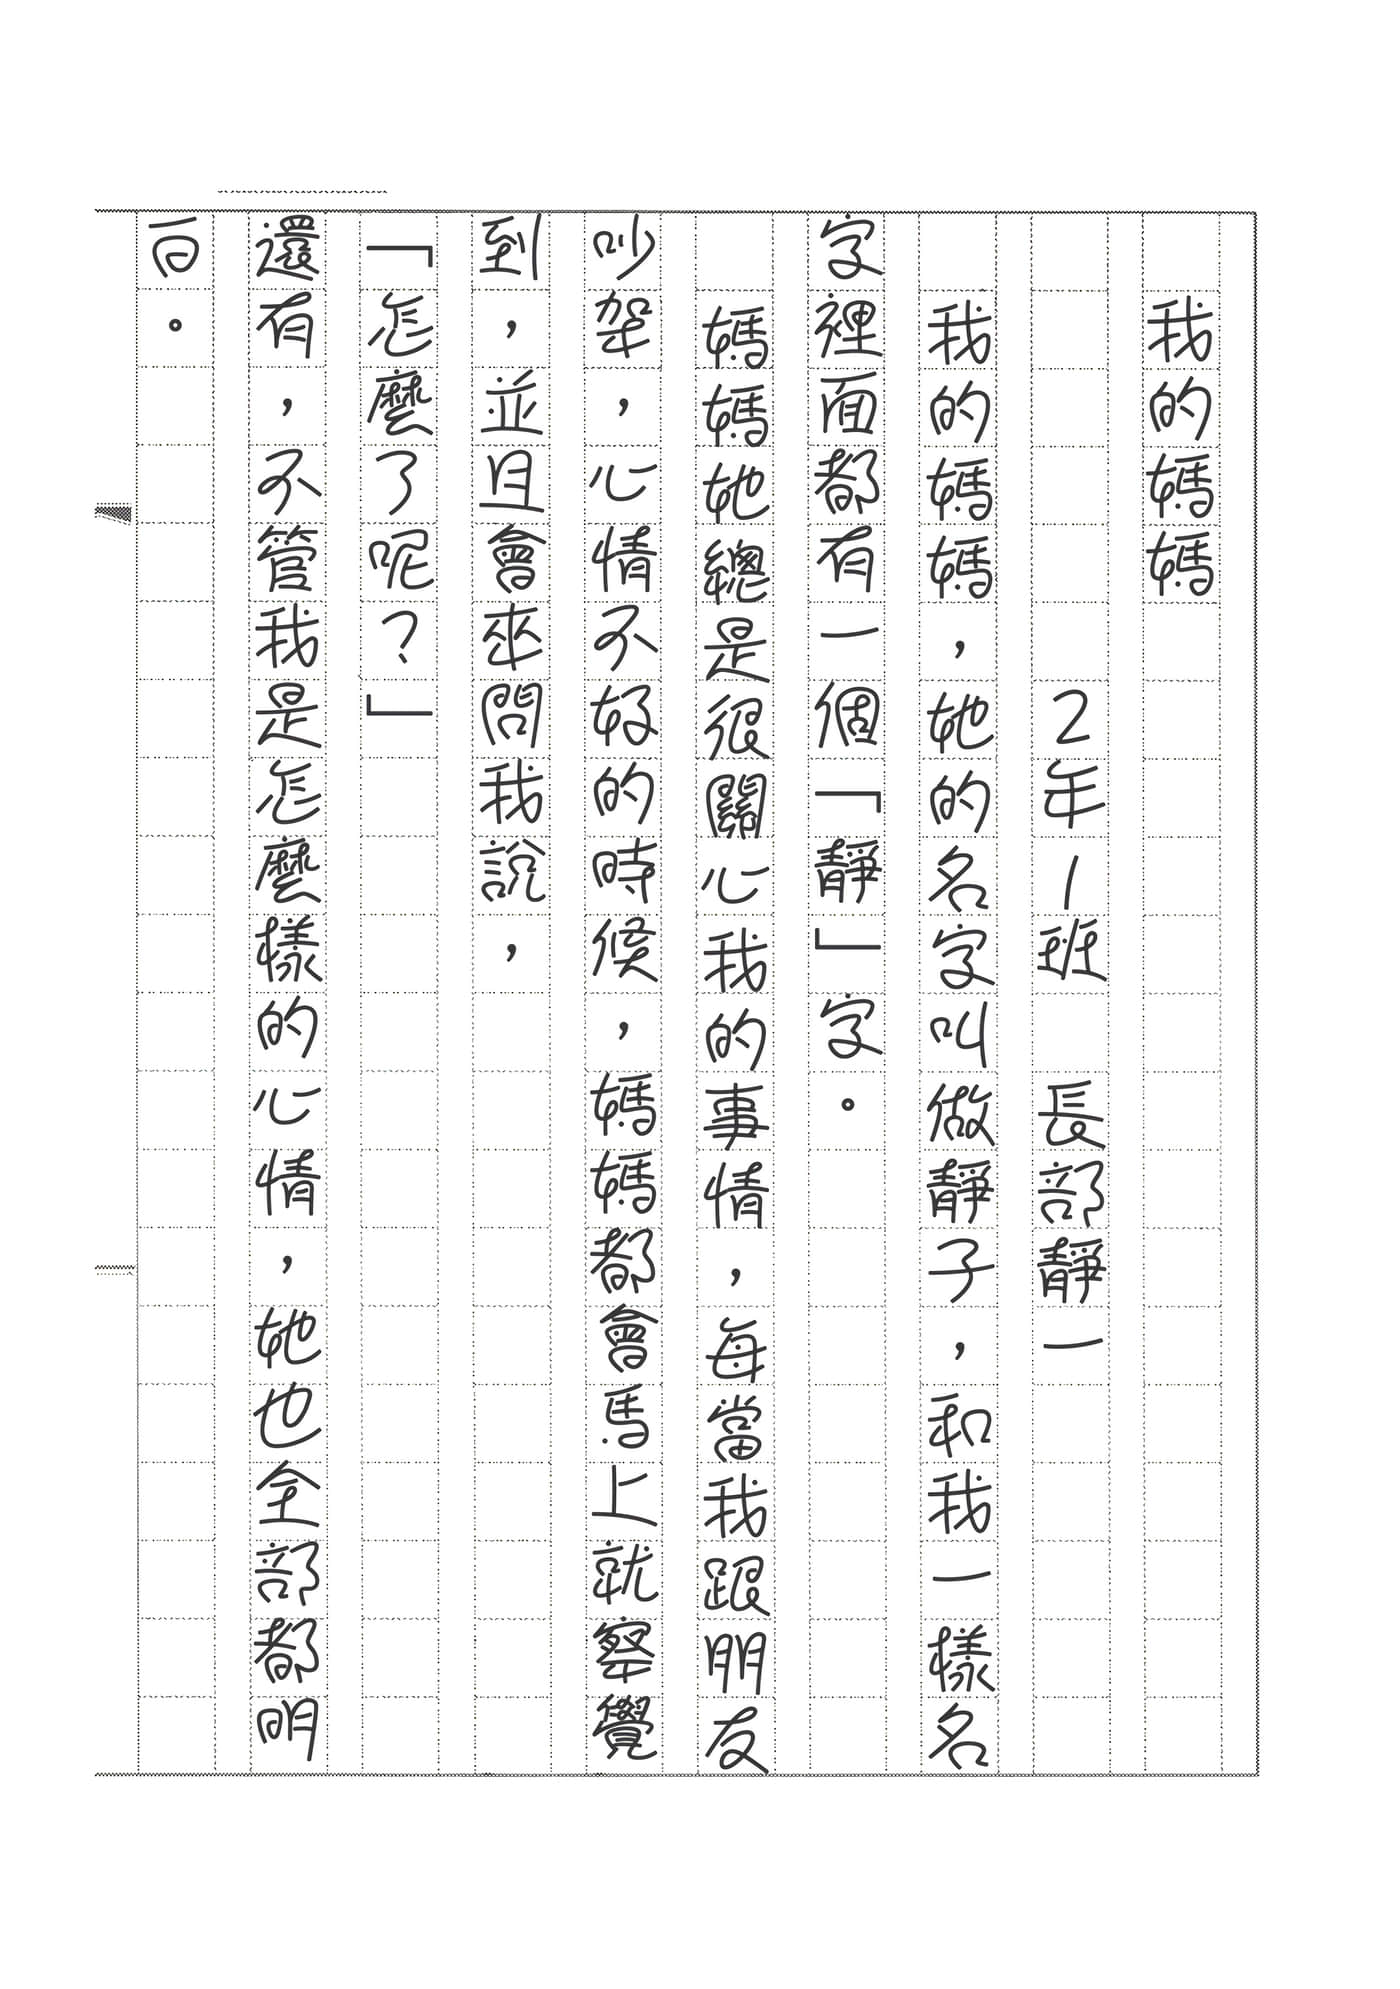 我的媽媽
2年1班 長部靜一
我的媽媽，她的名字叫做靜子，和我一樣名
字裡面都有一個「靜」字。
媽媽她總是很關心我的事情，每當我跟朋友
吵架，心情不好的時候，媽媽都會馬上就察覺
到，並且會來問我說，
「怎麼了呢？」
還有，不管我是怎麼樣的心情，她也全部都明
白。